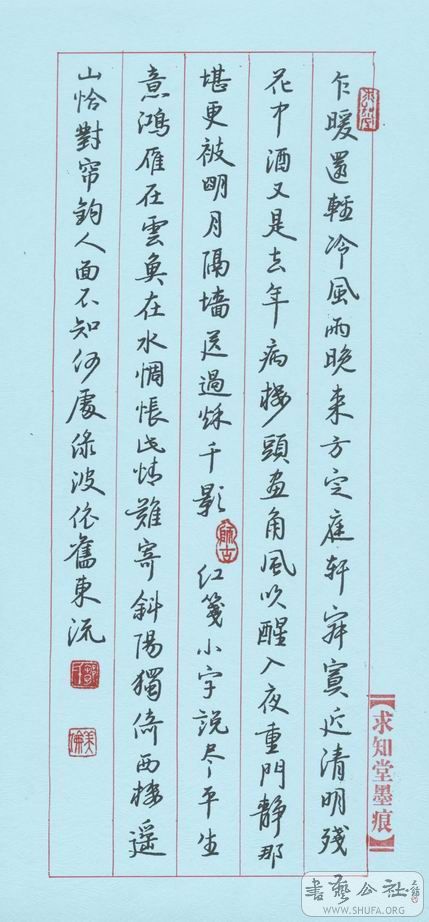 乍暖還輕冷風雨晚来方定庭軒寂寞近清明殘
花中酒又是去年病樓頭画角風吹醒入夜重門静那
堪更被明月隔墙送過秋千影
师古
红箋小字說尽平生
意鴻雁在雲魚在水惆悵此情難寄斜陽獨倚西樓遥
山恰對帘鈎人面不知何處緑波依舊東流
【求知堂墨痕】
書藝公社
WWW.SHUFA.ORG